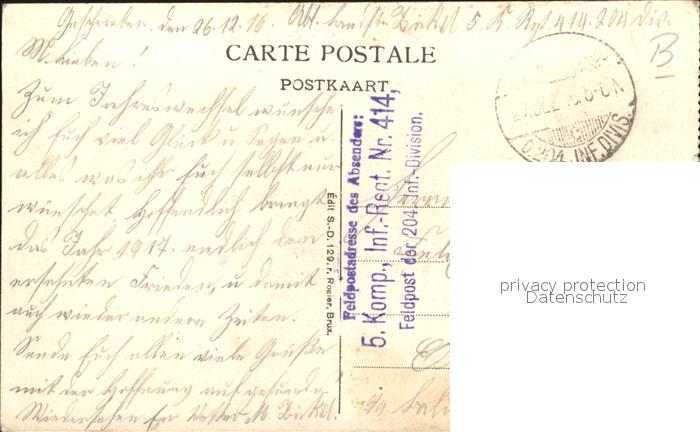 Geschrieben den 26.12.16. Abs. Landst. 5. K. Rgt. 414. 204 Div.
M. Lieben!
CARTE POSTALE
POSTKAART
B
Zum Jahreswechsel wünsche
ich Euch viel Glück u. Segen u.
alles was ihr Euch selbst nur
wünschet. Hoffentlich bringt
das Jahr 1917. endlich den
ersehnten Frieden, u. damit
auch wieder andere Zeiten.
Sende Euch allen viele Grüße
mit der Hoffnung auf gesundes
Wiedersehen Euer Vetter M.
Édit S.-D. 129, r. Rogier, Brux.
Feldpostadresse des Absenders:
5. Komp., Inf.-Regt. Nr. 414,
Feldpost der 204. Inf.-Division.
204. INF. DIVIS.
privacy protection
Datenschutz